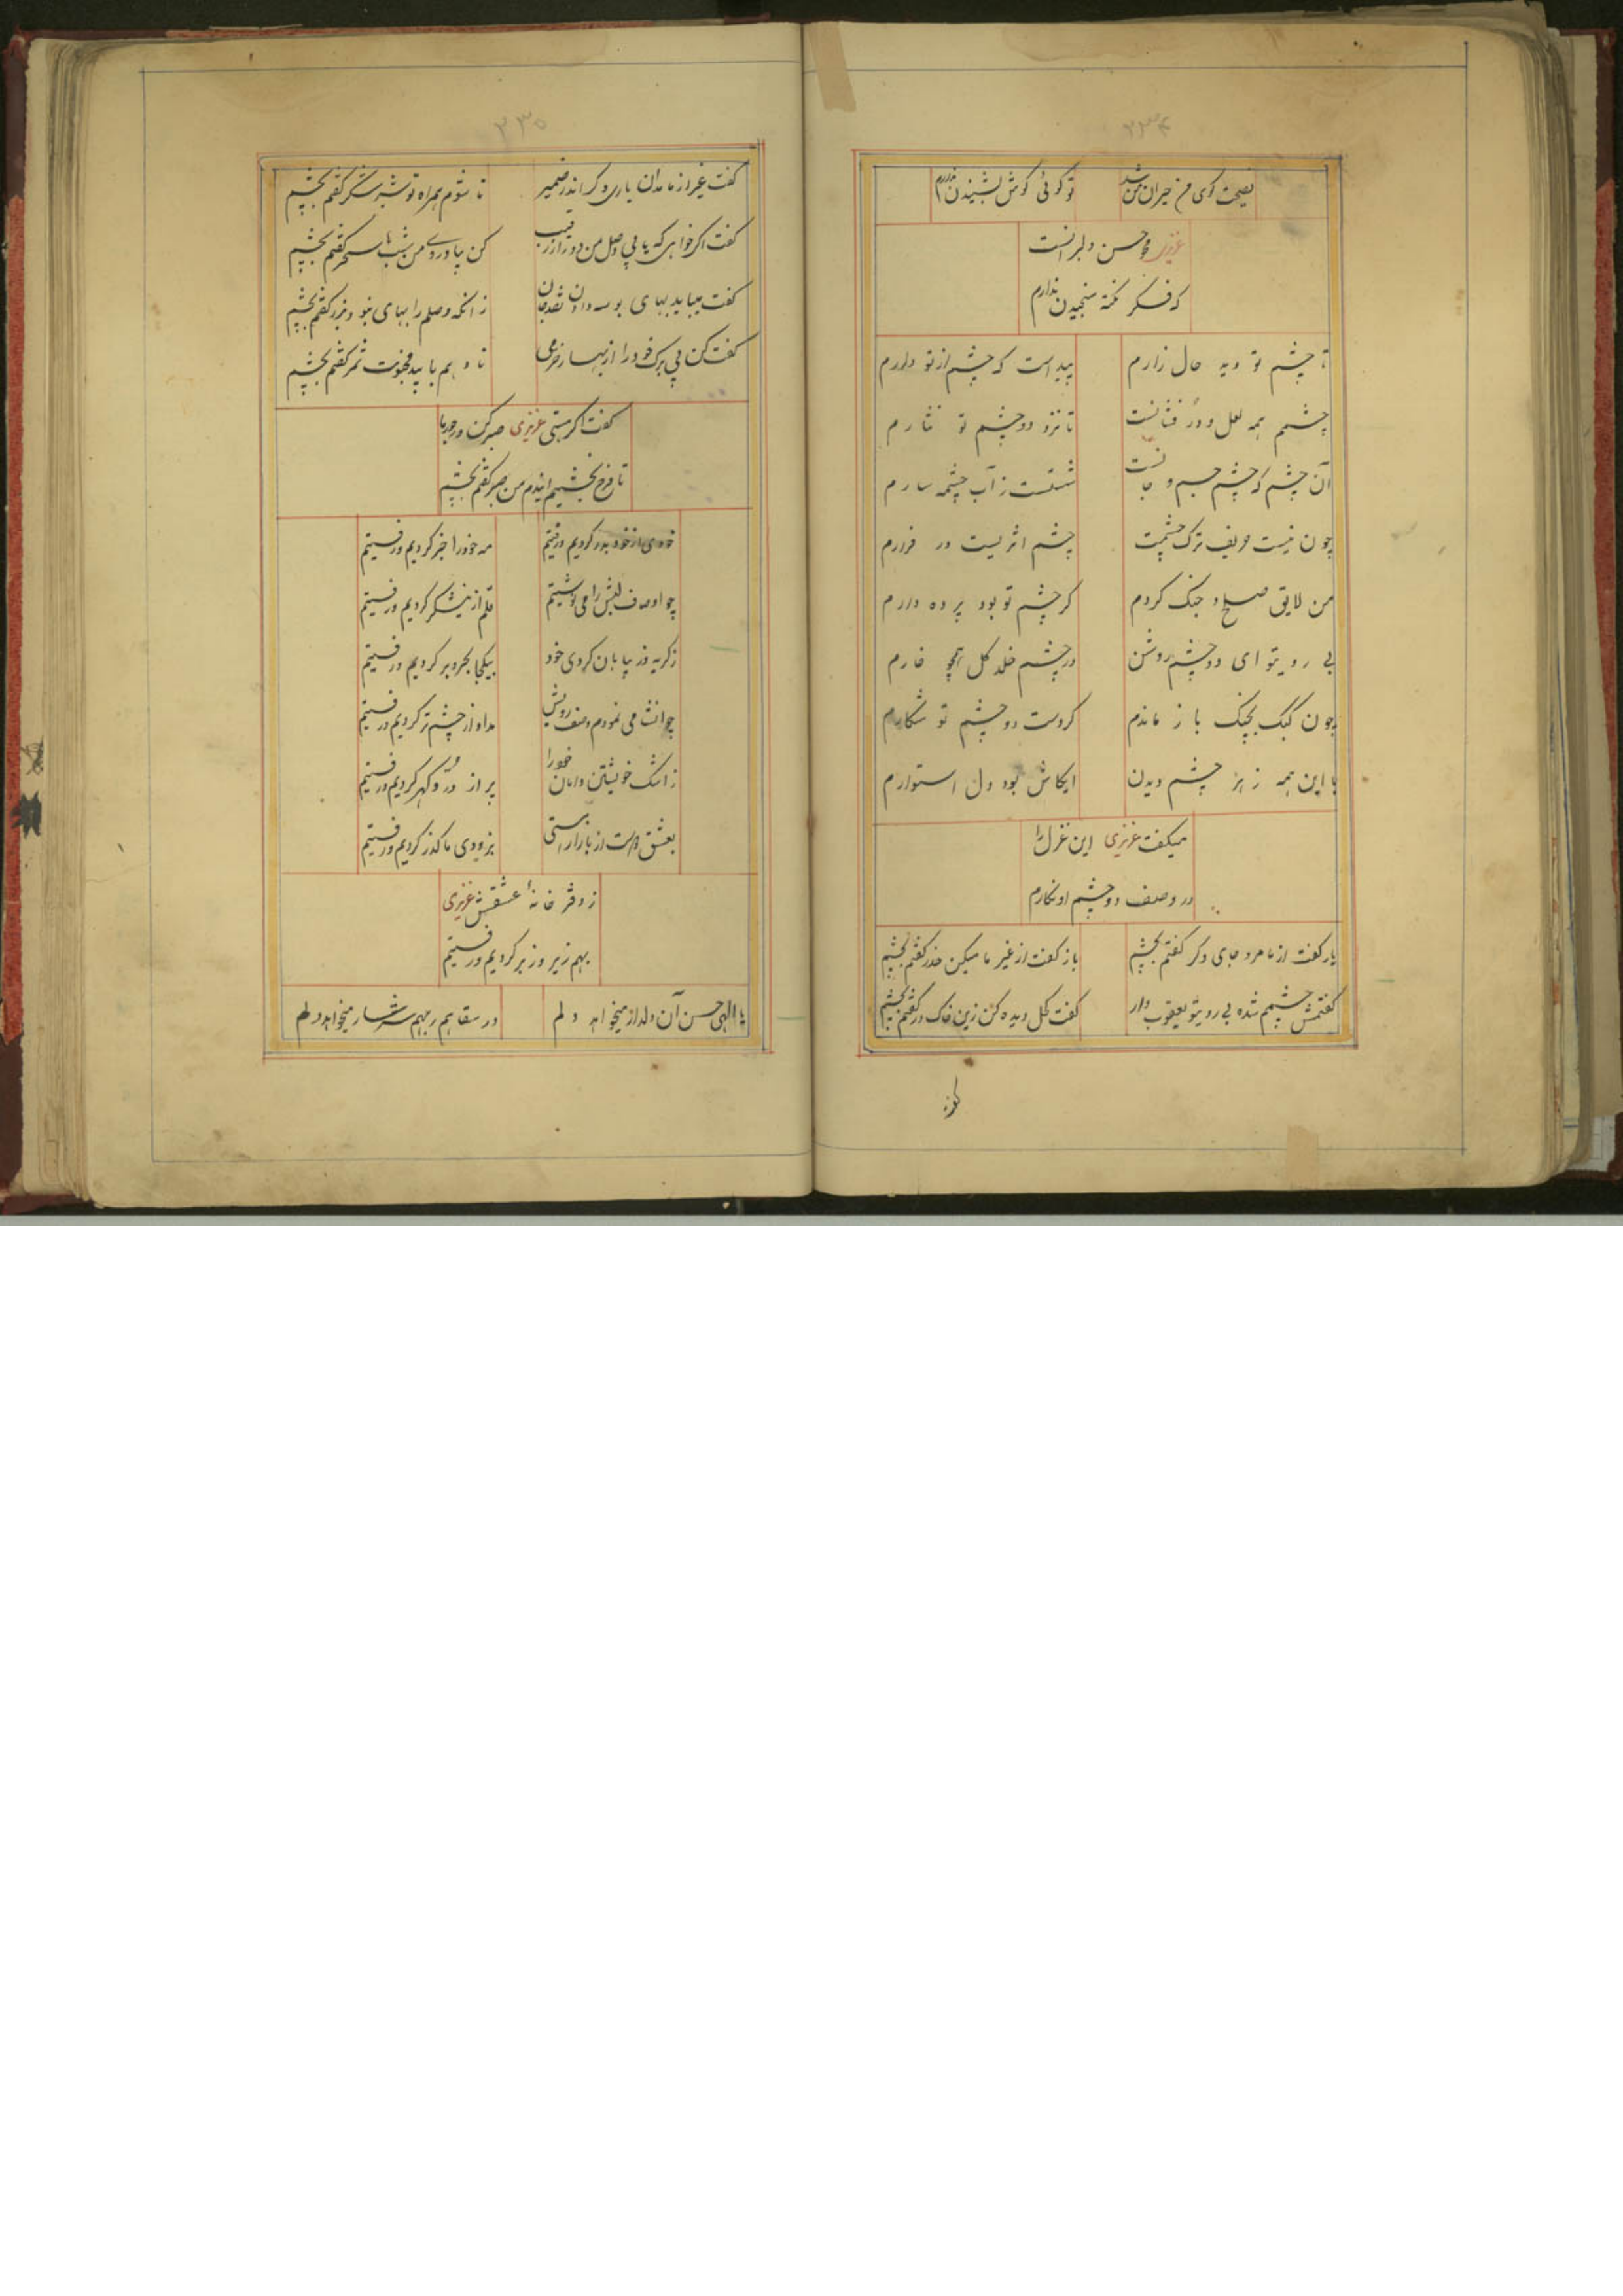 ۲۳۴
نصیحت کوی من حیران من شد تو کوئی کوش بشنیدن ندارم
عزیزی محو حسن دلبرانست
که فکر نکته سنجیدن ندارم
تا چشم تو دید حال زارم پیداست که چشم از تو دارم
چشمم همه لعل و در فشانست تا نزد دو چشم تو نثارم
آن چشم که چشم جسم و جانست شستست ز آب چشمه سارم
چون نیست حریف ترک چشمت چشم اثریست در فرارم
من لایق صلح و جنک کردم کر چشم تو بود پرده دارم
بی رویتو ای دو چشم روشن در چشم خلد کل همچو خارم
چون کبک بچنک باز ماندم کردست دو چشم تو شکارم
با این همه زهر چشم دیدن ایکاش بود دل استوارم
میکفت عزیزی این غزل را
در وصف دو چشم او نکارم
یار کفت از ما مرو جای دکر کفتم بچشم باز کفت از غیر ما میکن حذر کفتم بچشم
کفتمش چشمم شده بی رویتو یعقوب وار کفت کحل دیده کن زین خاک در کفتم بچشم
۲۳۵
کفت غیر از ما مدان یاری دکر اندر ضمیر تا شوم همراه تو شیر و شکر کفتم بچشم
کفت اکر خواهی که یابی وصل من دور از رقیب کن بیاد روی من شب تا سحر کفتم بچشم
کفت میباید بهای بوسه دادن نقد جان زانکه وصلم را بهای نبود دیکر کفتم بچشم
کفت کن بی برک خود را از بهار خرمی تا دهم با بید مجنونت ثمر کفتم بچشم
کفت اکر هستی عزیزی صبر کن در جور ما
خودی را از خود بدر کردیم و رفتیم مه خود را خبر کردیم و رفتیم
چو اوصاف لبش را می نوشتیم قلم از نیشکر کردیم و رفتیم
ز کریه در بیابان کردی خود بیکجا بحر و بر کردیم و رفتیم
چو انشا می نمودم وصف رویش مداد از چشم تر کردیم و رفتیم
ز اشک خویشتن دامان خود را پر از در و کهر کردیم و رفتیم
ز دفتر خانهٔ عشقش عزیزی
بهم زیر و زبر کردیم و رفتیم
یا الهی حسن آن دلدار میخواهد دلم